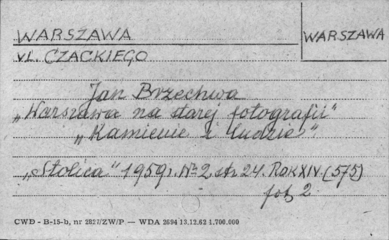 WARSZAWA
WARSZAWA
ul. CZACKIEGO
Jan Brzechwa
„Warszawa na starej fotografii"
„Kamienie i ludzie"
„Stolica" 1959 r. Nº 2 str. 24. ROK XIV. (575)
fot. 2
CWD - B-15-b, nr 2821/ZW/P — WDA 2694 13.12.62 1.700.000